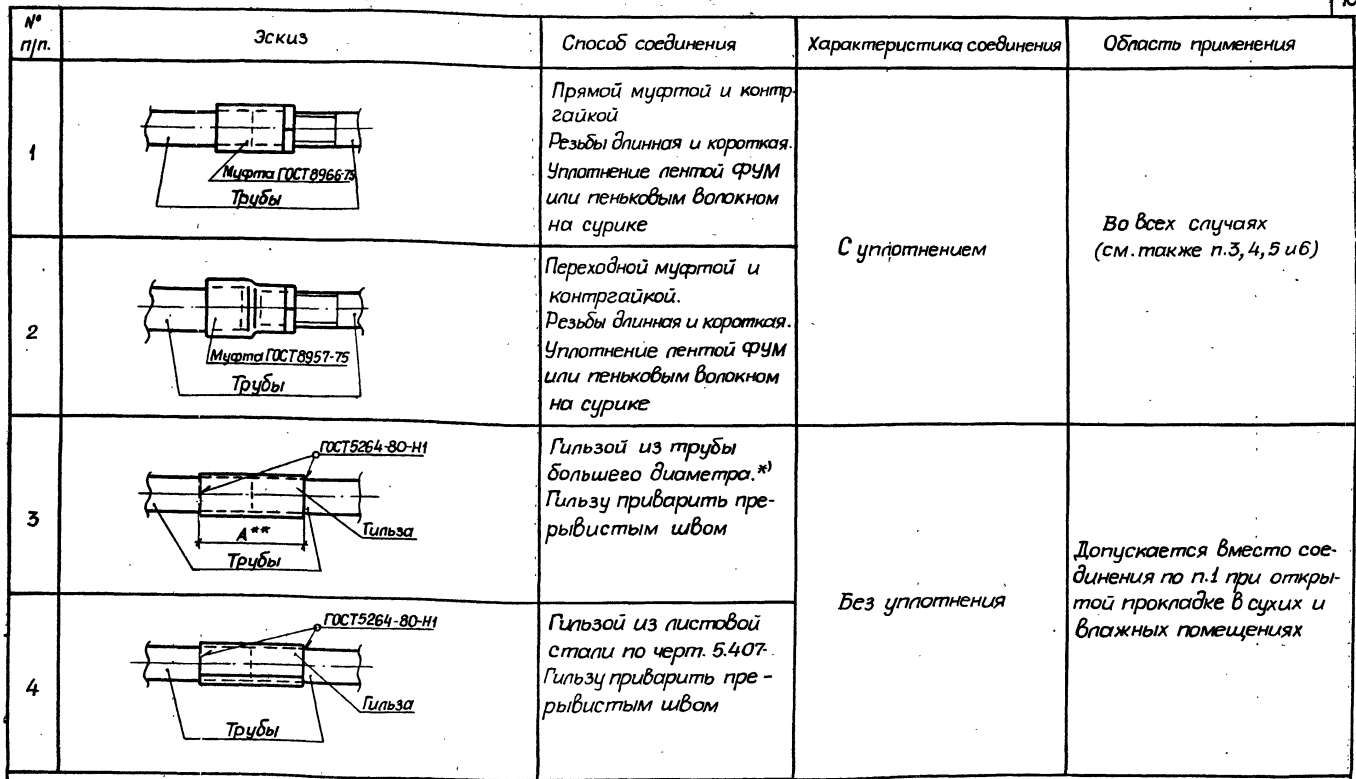 № п/п.
Эскиз
Способ соединения
Характеристика соединения
Область применения
1
Муфта ГОСТ 8966-75
Трубы
Прямой муфтой и контр-
гайкой
Резьбы длинная и короткая.
Уплотнение лентой ФУМ
или пеньковым волокном
на сурике
С уплотнением
Во всех случаях
(см. также п.3, 4, 5 и 6)
2
Муфта ГОСТ 8957-75
Трубы
Переходной муфтой и
контргайкой.
Резьбы длинная и короткая.
Уплотнение лентой ФУМ
или пеньковым волокном
на сурике
3
ГОСТ 5264-80-Н1
А**
Гильза
Трубы
Гильзой из трубы
большего диаметра.*)
Гильзу приварить пре-
рывистым швом
Без уплотнения
Допускается вместо сое-
динения по п.1 при откры-
той прокладке в сухих и
влажных помещениях
4
ГОСТ 5264-80-Н1
Гильза
Трубы
Гильзой из листовой
стали по черт. 5.407-
Гильзу приварить пре-
рывистым швом